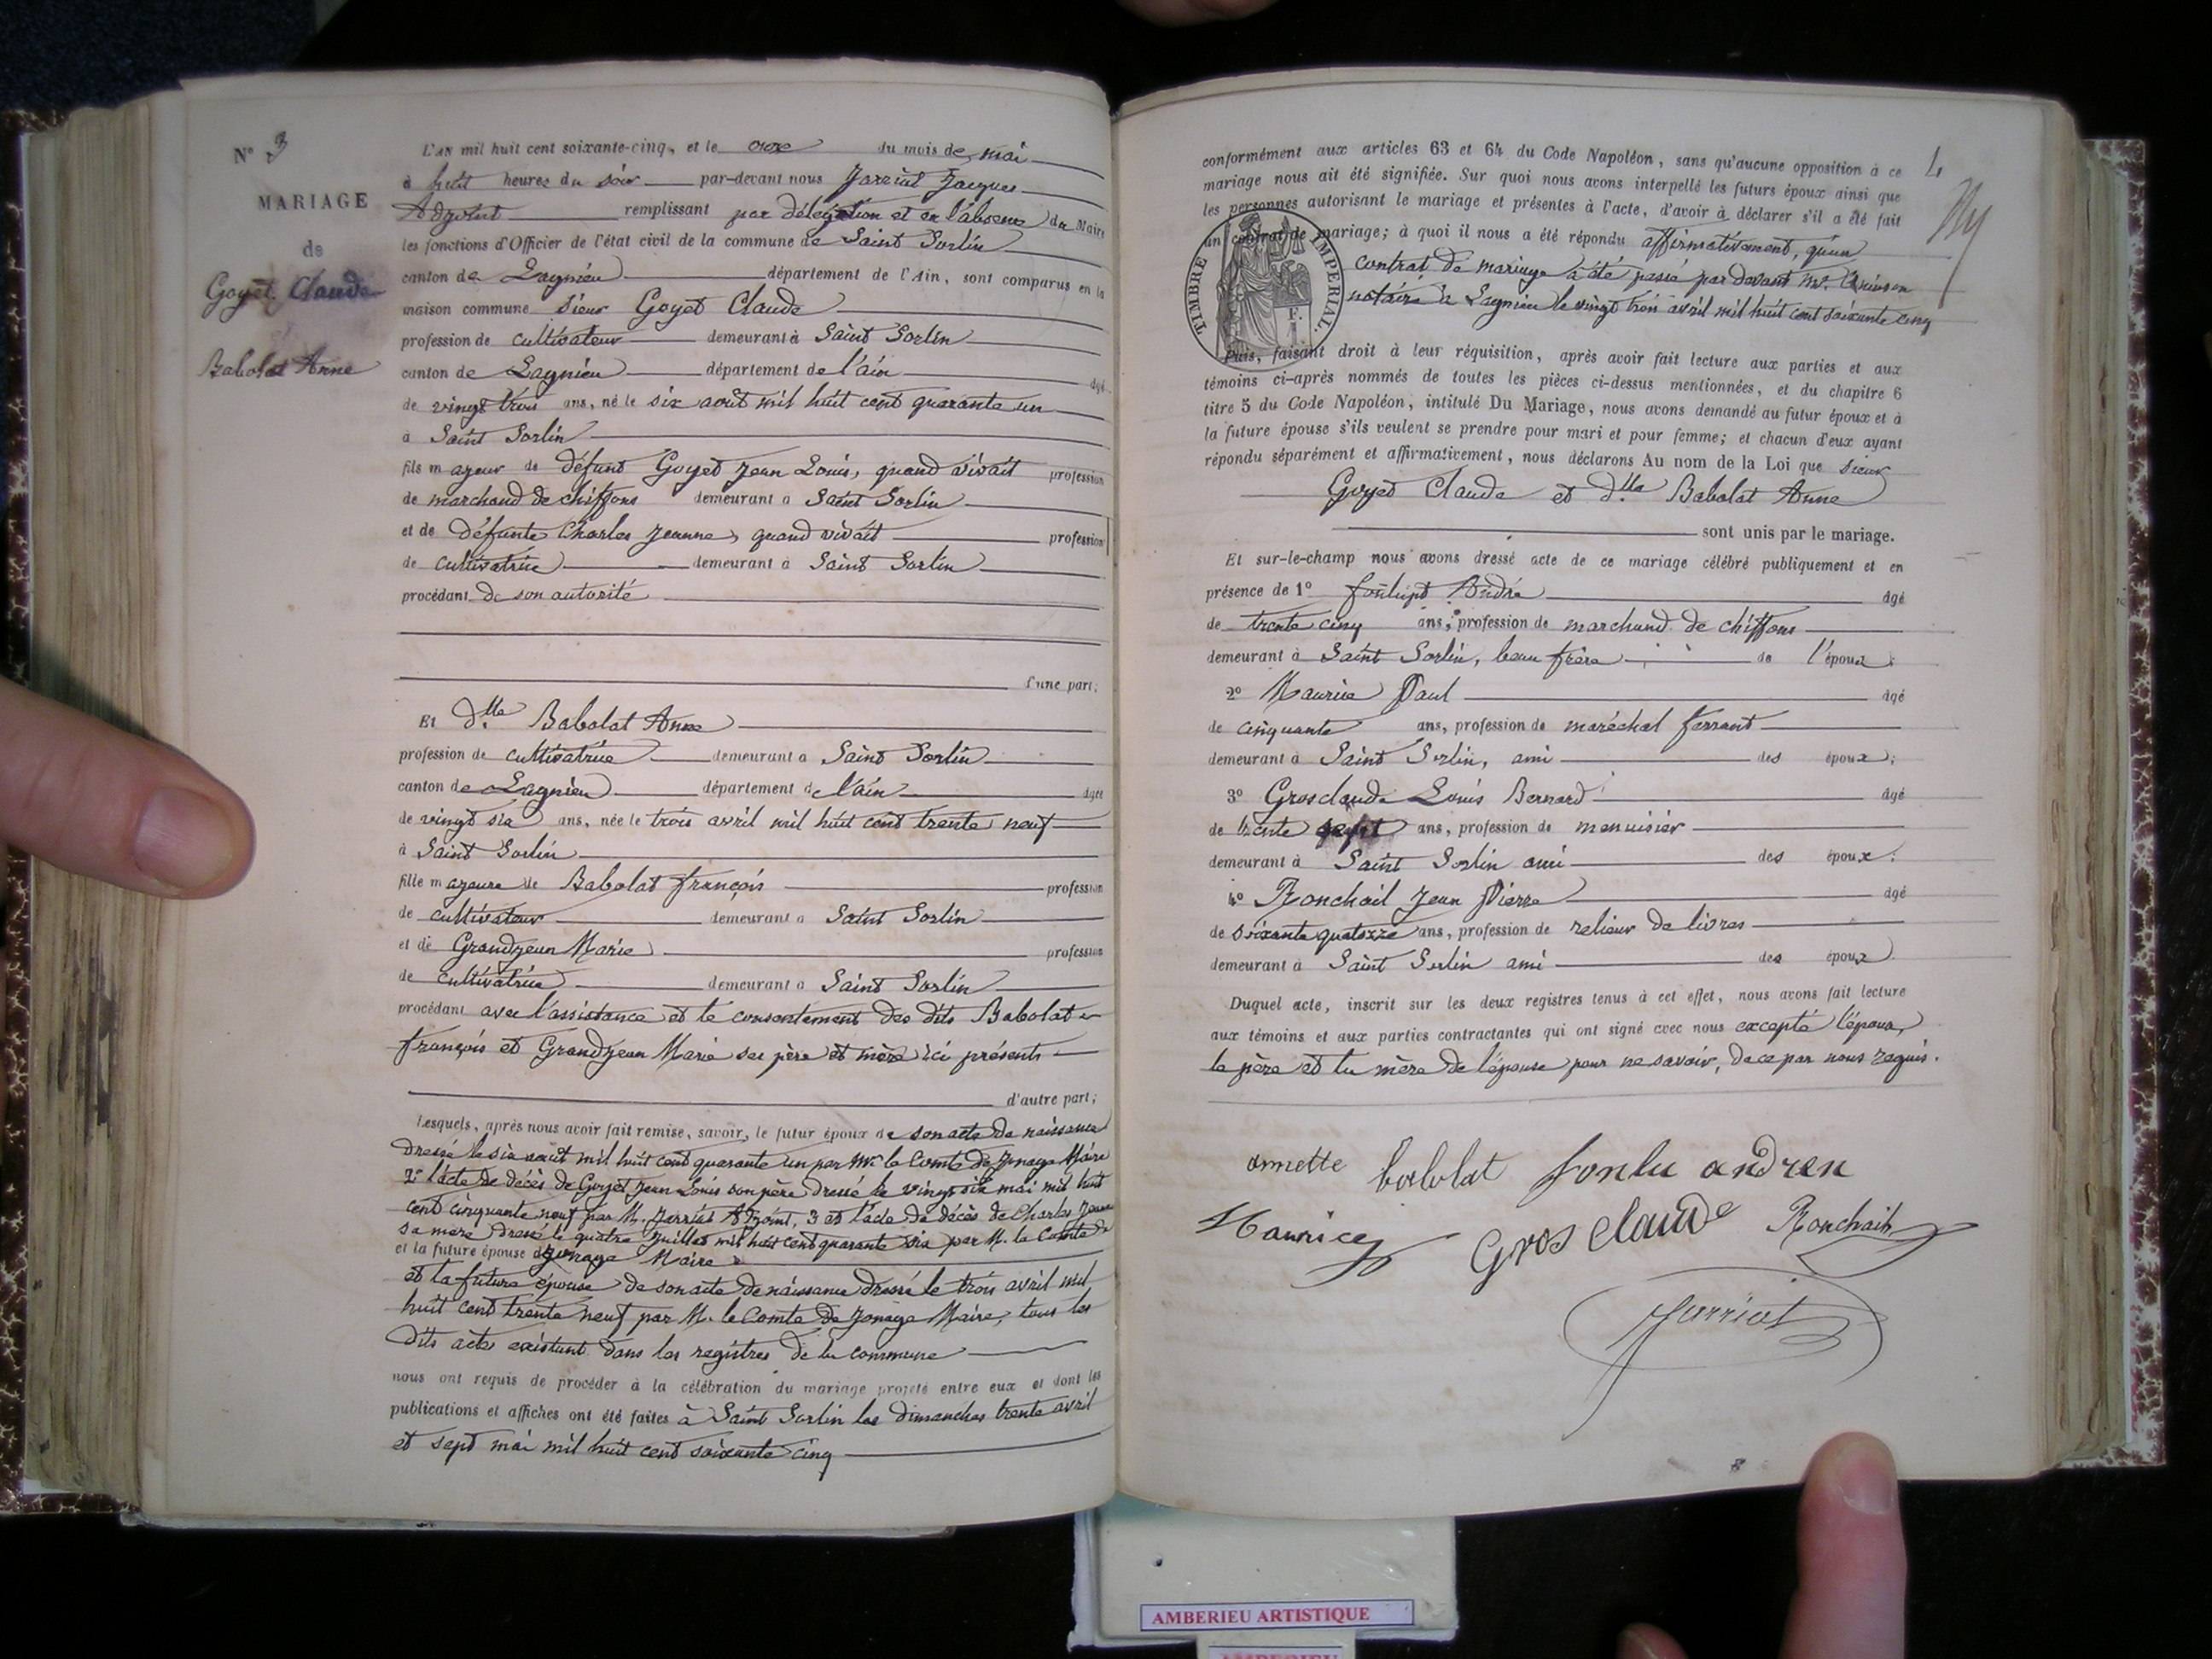 N° 3
MARIAGE
de
Goyet Claude
Babolat Anne
L'AN mil huit cent soixante-cinq, et le onze du mois de mai
à huit heures du soir par-devant nous Jarriat Jacques
Adjoint remplissant par délégation et en l'absence du Maire
les fonctions d'Officier de l'état civil de la commune de Saint Sorlin
canton de Lagnieu département de l'Ain, sont comparus en la
maison commune sieur Goyet Claude
profession de cultivateur demeurant à Saint Sorlin
canton de Lagnieu département de l'ain âgé
de vingt trois ans, né le six août mil huit cent quarante un
à Saint Sorlin
fils majeur de défunt Goyet Jean Louis, quand vivait profession
de marchand de chiffons demeurant à Saint Sorlin
et de défunte Charles Jeanne, quand vivait profession
de cultivatrice demeurant à Saint Sorlin
procédant de son autorité
d'une part;
Et dlle Babolat Anne
profession de cultivatrice demeurant à Saint Sorlin
canton de Lagnieu département de l'ain âgée
de vingt six ans, née le trois avril mil huit cent trente neuf
à Saint Sorlin
fille majeure de Babolat françois profession
de cultivateur demeurant à Saint Sorlin
et de Grandjean Marie profession
de cultivatrice demeurant à Saint Sorlin
procédant avec l'assistance et le consentement des dits Babolat
françois et Grandjean Marie ses père et mère ici présents
d'autre part;
Lesquels, après nous avoir fait remise, savoir, le futur époux de son acte de naissance
dressé le six août mil huit cent quarante un par Mr le Comte de Jonage Maire
2° l'acte de décès de Goyet Jean Louis son père dressé le vingt six mai mil huit
cent cinquante neuf par M. Jarriat Adjoint, 3 et l'acte de décès de Charles Jeanne
sa mère dressé le quatre Juillet mil huit cent quarante six par M. le Comte de
et la future épouse de Jonage Maire
et la future épouse de son acte de naissance dressé le trois avril mil
huit cent trente neuf par M. le Comte de Jonage Maire, tous les
dits actes existant dans les registres de la commune
nous ont requis de procéder à la célébration du mariage projeté entre eux et dont les
publications et affiches ont été faites à Saint Sorlin les dimanches trente avril
et sept mai mil huit cent soixante cinq
4
conformément aux articles 63 et 64 du Code Napoléon, sans qu'aucune opposition à ce
mariage nous ait été signifiée. Sur quoi nous avons interpellé les futurs époux ainsi que
les personnes autorisant le mariage et présentes à l'acte, d'avoir à déclarer s'il a été fait
un contrat de mariage; à quoi il nous a été répondu affirmativement, qu'un
contrat de mariage a été passé par devant Mr.
notaire à Lagnieu le vingt trois avril mil huit cent soixante cinq
TIMBRE IMPERIAL.
Puis, faisant droit à leur réquisition, après avoir fait lecture aux parties et aux
témoins ci-après nommés de toutes les pièces ci-dessus mentionnées, et du chapitre 6
titre 5 du Code Napoléon, intitulé Du Mariage, nous avons demandé au futur époux et à
la future épouse s'ils veulent se prendre pour mari et pour femme; et chacun d'eux ayant
répondu séparément et affirmativement, nous déclarons Au nom de la Loi que sieur
Goyet Claude et dlle Babolat Anne
sont unis par le mariage.
Et sur-le-champ nous avons dressé acte de ce mariage célébré publiquement et en
présence de 1° André âgé
de trente cinq ans, profession de marchand de chiffons
demeurant à Saint Sorlin, beau frère de l'époux;
2° Maurice Paul âgé
de cinquante ans, profession de maréchal ferrant
demeurant à Saint Sorlin, ami des époux;
3° Grosclaude Louis Bernard âgé
de trente ans, profession de menuisier
demeurant à Saint Sorlin ami des époux;
4° Ronchail Jean Pierre âgé
de soixante quatorze ans, profession de relieur de livres
demeurant à Saint Sorlin ami des époux
Duquel acte, inscrit sur les deux registres tenus à cet effet, nous avons fait lecture
aux témoins et aux parties contractantes qui ont signé avec nous excepté l'époux,
le père et la mère de l'épouse pour ne savoir, de ce par nous requis.
annette babolat fonlu andren
Maurice Gros claude Ronchail
Jarriat
AMBERIEU ARTISTIQUE
AMBERIEU